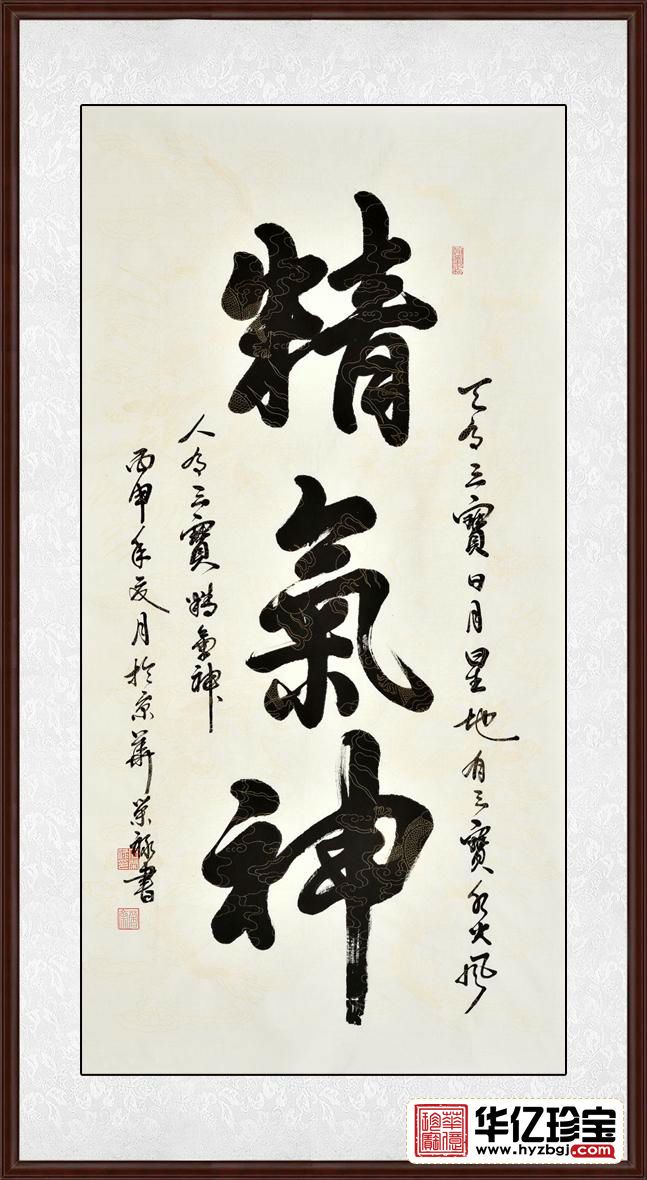 精氣神
天有三寶日月星地有三寶水火風
人有三寶精氣神
丙申年夏月於京華榮祿書
华亿珍宝
www.hyzbgj.com